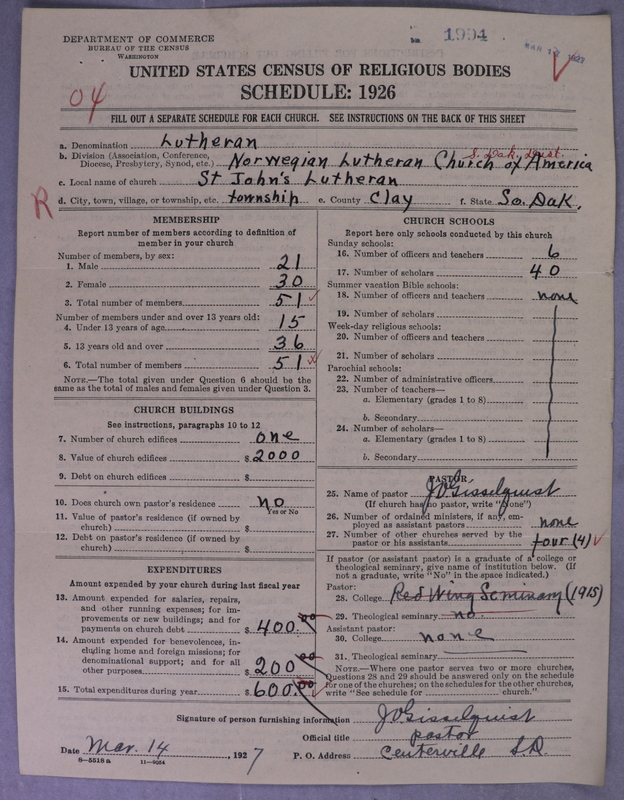 DEPARTMENT OF COMMERCE
BUREAU OF THE CENSUS
WASHINGTON
1994
MAR 1927
UNITED STATES CENSUS OF RELIGIOUS BODIES
SCHEDULE: 1926
04
FILL OUT A SEPARATE SCHEDULE FOR EACH CHURCH. SEE INSTRUCTIONS ON THE BACK OF THIS SHEET
a. Denomination Lutheran
b. Division (Association, Conference, Diocese, Presbytery, Synod, etc.) Norwegian Lutheran Church of America
S. Dak. Dist.
c. Local name of church St John's Lutheran
R
d. City, town, village, or township, etc. township e. County Clay f. State So. Dak.
MEMBERSHIP
Report number of members according to definition of
member in your church
Number of members, by sex:
1. Male 21
2. Female 30
3. Total number of members 51
Number of members under and over 13 years old:
4. Under 13 years of age 15
5. 13 years old and over 36
6. Total number of members 51
NOTE.—The total given under Question 6 should be
same as the total of males and females given under Question 3.
CHURCH BUILDINGS
See instructions, paragraphs 10 to 12
7. Number of church edifices one
8. Value of church edifices $ 2000
9. Debt on church edifices $
10. Does church own pastor's residence no
Yes or No
11. Value of pastor's residence (if owned by
church) $
12. Debt on pastor's residence (if owned by
church) $
EXPENDITURES
Amount expended by your church during last fiscal year
13. Amount expended for salaries, repairs,
and other running expenses; for im-
provements or new buildings; and for
payments on church debt $ 400.00
14. Amount expended for benevolences, in-
cluding home and foreign missions; for
denominational support; and for all
other purposes $ 200.00
15. Total expenditures during year $ 600.00
CHURCH SCHOOLS
Report here only schools conducted by this church
Sunday schools:
16. Number of officers and teachers 6
17. Number of scholars 40
Summer vacation Bible schools:
18. Number of officers and teachers none
19. Number of scholars
Week-day religious schools:
20. Number of officers and teachers
21. Number of scholars
Parochial schools:
22. Number of administrative officers
23. Number of teachers—
a. Elementary (grades 1 to 8)
b. Secondary
24. Number of scholars—
a. Elementary (grades 1 to 8)
b. Secondary
PASTOR
25. Name of pastor J O Gisselquist
(If church has no pastor, write "None")
26. Number of ordained ministers, if any, em-
ployed as assistant pastors none
27. Number of other churches served by the
pastor or his assistants four (4)
If pastor (or assistant pastor) is a graduate of a college or
theological seminary, give name of institution below. (If
not a graduate, write "No" in the space indicated.)
Pastor:
28. College Red Wing Seminary (1915)
29. Theological seminary no.
Assistant pastor:
30. College none
31. Theological seminary
NOTE.—Where one pastor serves two or more churches,
Questions 28 and 29 should be answered only on the schedule
for one of the churches; on the schedules for the other churches,
write "See schedule for church."
Signature of person furnishing information J O Gisselquist
Official title pastor
Date Mar. 14, 1927 P. O. Address Centerville S.D.
8—5518 a 11—9064